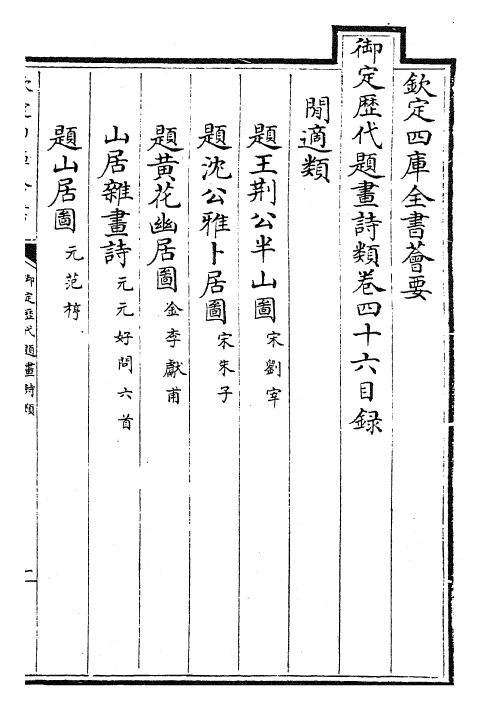 欽定四庫全書薈要
御定歴代題畫詩類卷四十六目録
閒適類
題王荆公半山圖 宋劉宰
題沈公雅卜居圖 宋朱子
題黃花幽居圖 金李獻甫
山居雜畫詩 元元好問六首
題山居圖 元范梈
御定歴代題畫詩類
一